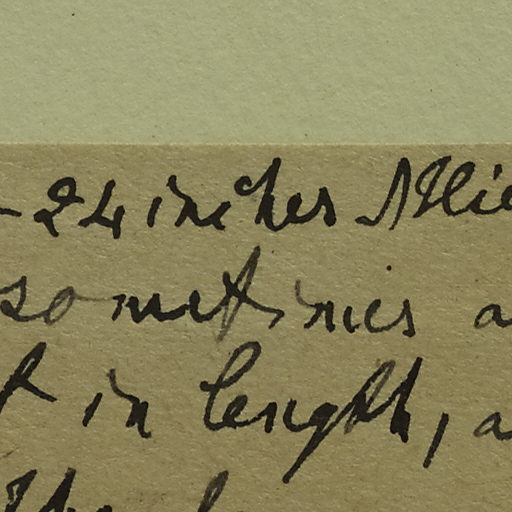 - 24 inches
sometimes a
in length, a